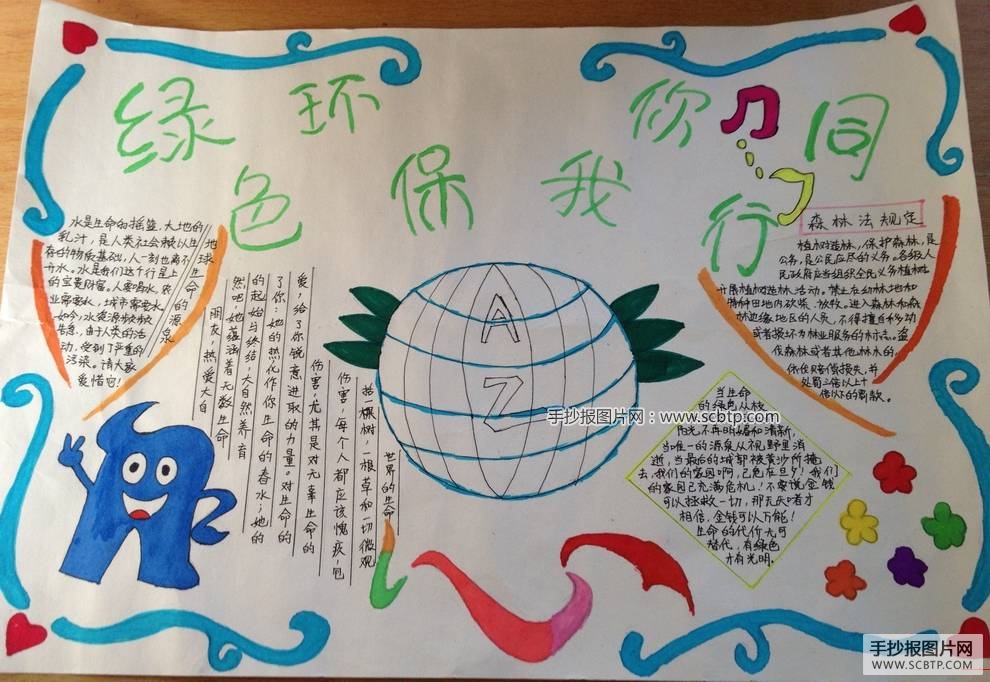 绿色环保你我同行
水是生命的摇篮,大地的
乳汁,是人类社会赖以生
存的物质基础,人一刻也离不
开水。水是我们这个行星上
的宝贵财富。人要喝水,农
业需要水,城市需要水
如今,水资源频频
告急,由于人类的活
动,受到了严重的
污染。请大家
爱惜它!
地球生命的源泉
朋友,热爱大自
然吧!她蕴涵着无数生命
的起始与终结,大自然养育
了你:她的热化作你生命的春水;她的
爱,给了你锐意进取的力量。对生命的
伤害,尤其是对无辜生命的
伤害,每个人都应该愧疚,包
括一棵树,一根草和一切微观
世界的生命
A
Z
森林法规定
植树造林,保护森林,是
公务,是公民应尽的义务。各级人
民政府应当组织全民义务植树
开展植树造林活动。禁止在幼林地和
特种田地内砍柴、放牧。进入森林和森
林边缘地区的人员,不得擅自移动
或者损坏为林业服务的标志。盗
伐森林或者其他林木的,
依法赔偿损失,并
处罚3倍以上十
倍以下的罚款。
当生命
的绿色从枝
阳光不再明媚和清新,
当唯一的源泉从视野里消
逝,当最后的城郭被黄沙所掩
去,我们的家园啊,已危在旦夕!我们
的家园已充满危机!不要说金钱
可以拯救一切,那无知者才
相信,金钱可以万能!
生命的代价无可
替代,有绿色
才有光明。
手抄报图片网:www.scbtp.com
手抄报图片网
WWW.SCBTP.COM